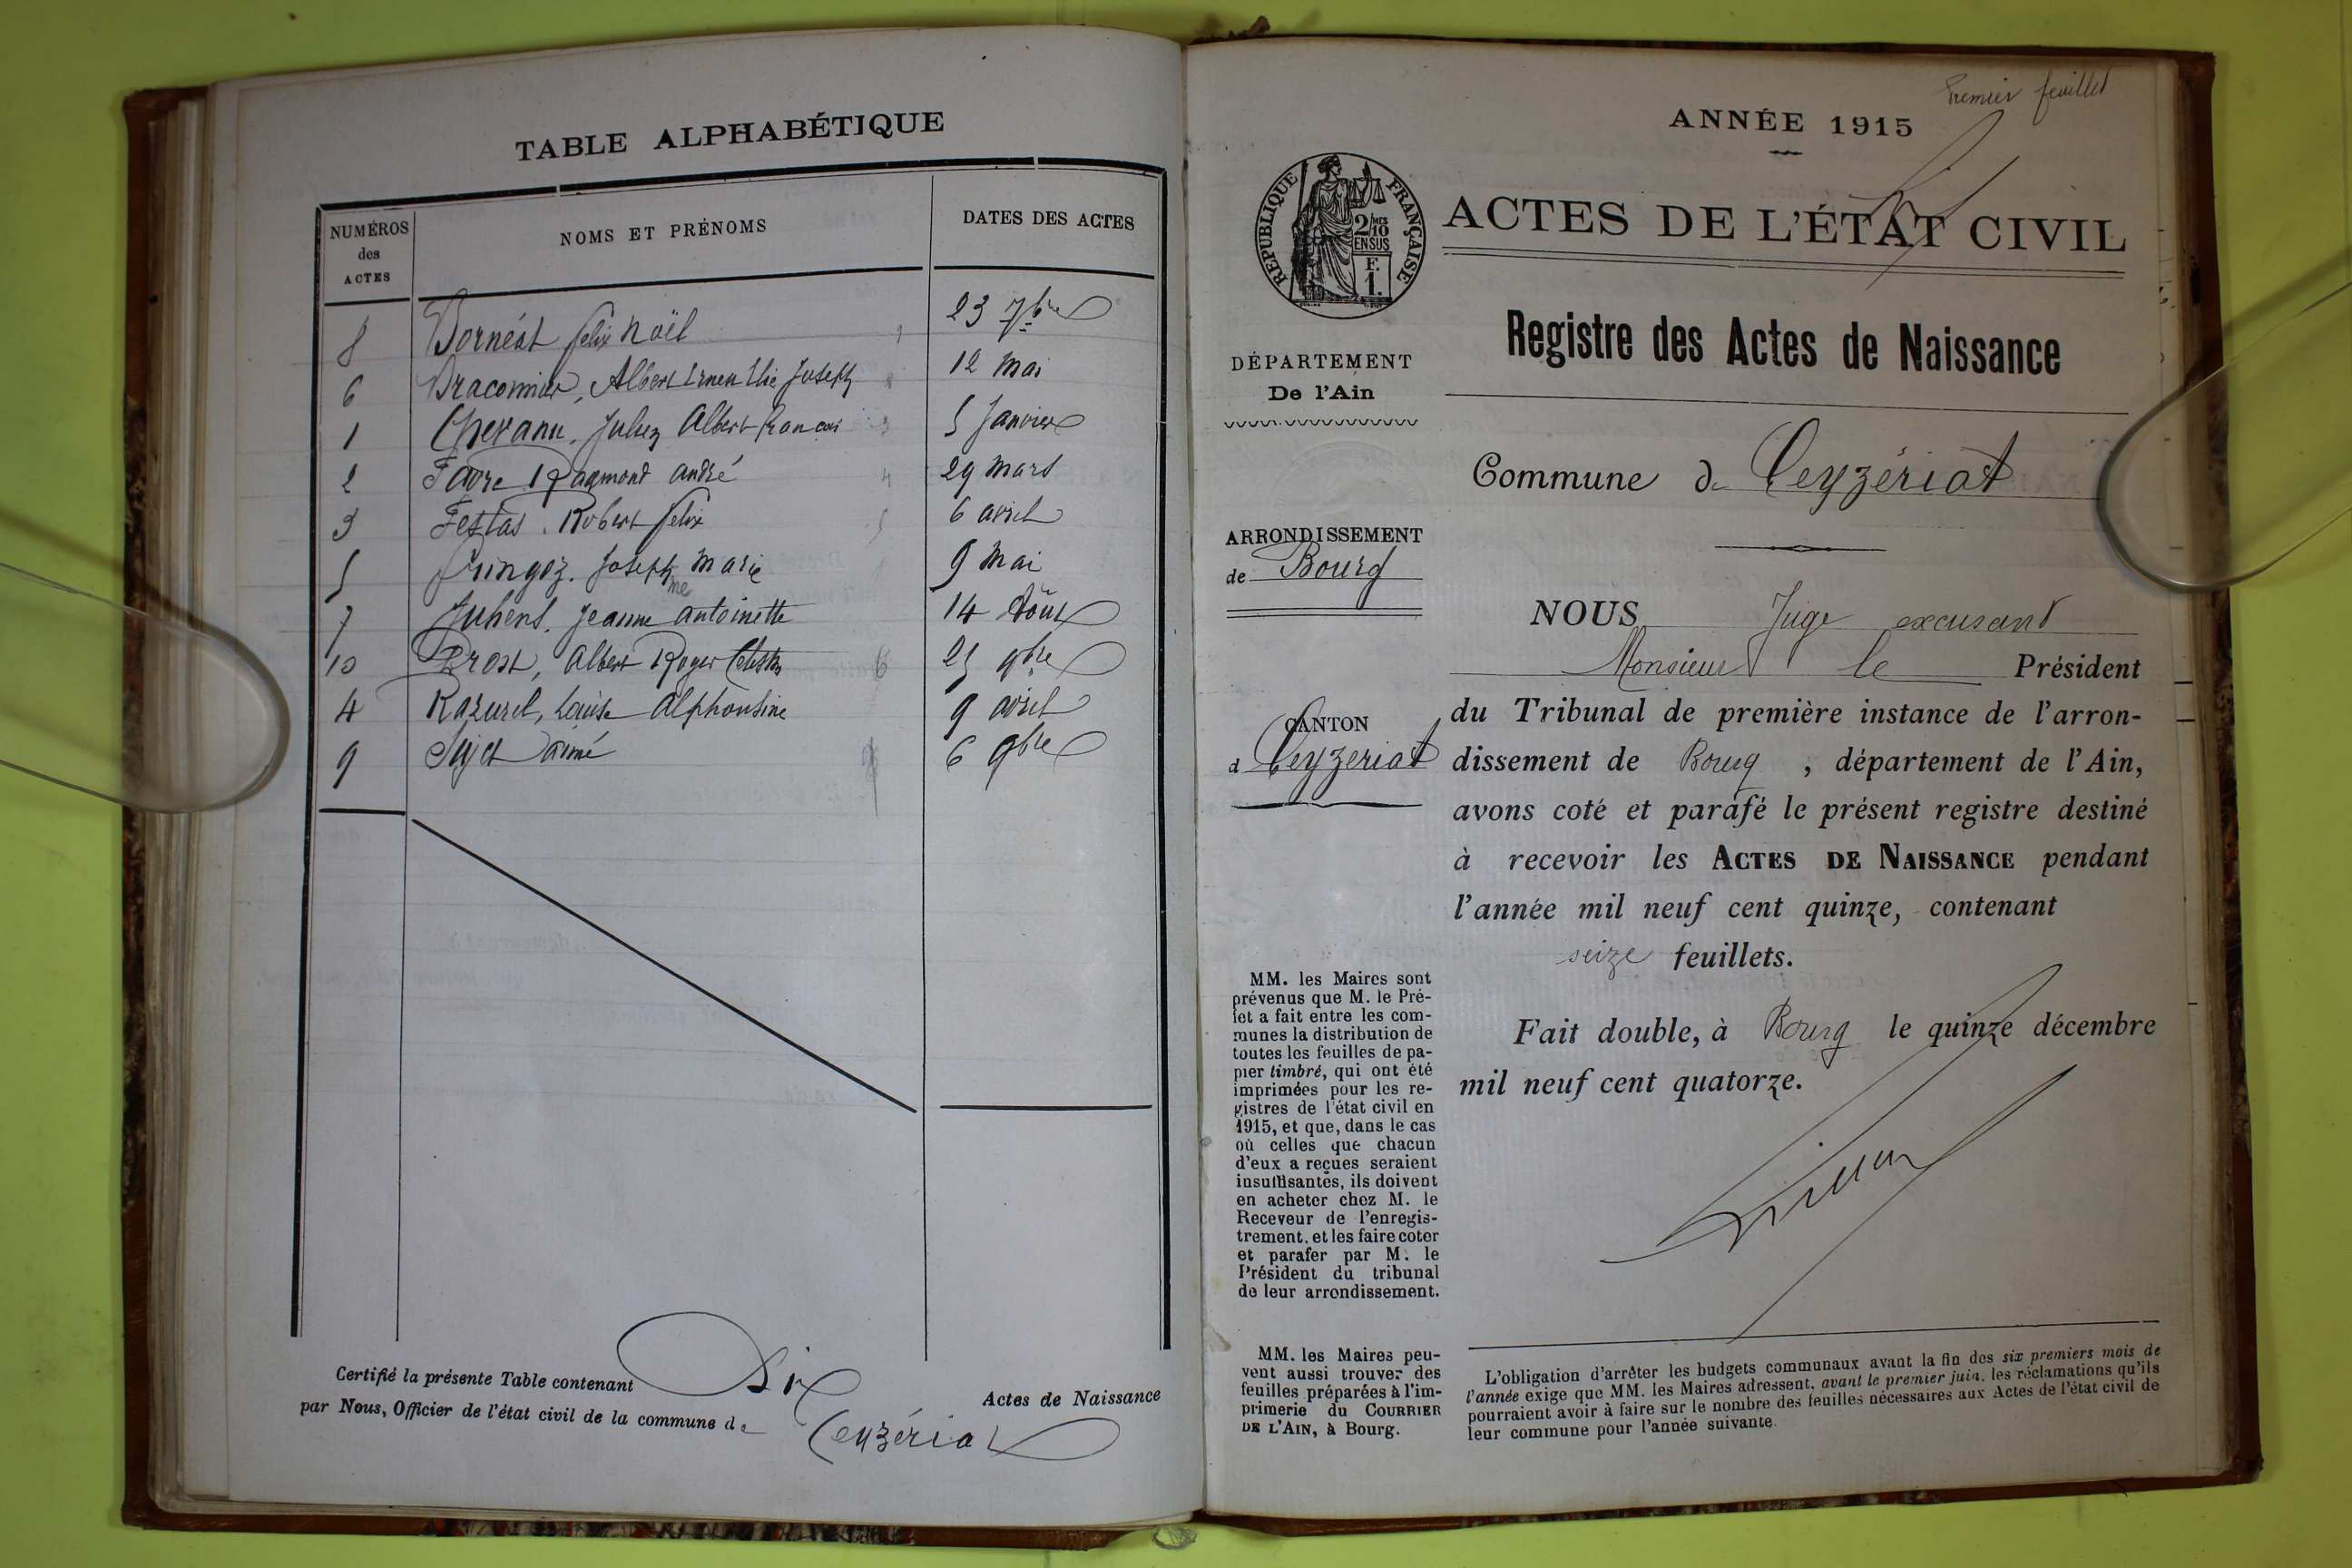 TABLE ALPHABÉTIQUE
NUMÉROS des ACTES
NOMS ET PRÉNOMS
DATES DES ACTES
8 Dornéat felix Noël 23 7bre
6 Albert Joseph 12 Mai
1 Albert 5 Janvier
2 Favre Raymond andré 29 Mars
3 Robert felix 6 avril
5 Joseph Marie 9 Mai
7 Jeanne antoinette 14 Août
10 Brost, Albert Roger 25 9bre
4 Razurel, Louise Alphonsine 9 avril
9 aimé 6 9bre
Certifié la présente Table contenant Dix Actes de Naissance
par Nous, Officier de l'état civil de la commune de Ceyzériat
Premier feuillet
ANNÉE 1915
RÉPUBLIQUE FRANÇAISE
2/10 MES
EN SUS
F.
1.
ACTES DE L'ÉTAT CIVIL
Registre des Actes de Naissance
DÉPARTEMENT
De l'Ain
Commune de Ceyzériat
ARRONDISSEMENT
de Bourg
CANTON
d Ceyzeriat
NOUS Juge excusant
Monsieur le Président
du Tribunal de première instance de l'arron-
dissement de Bourg, département de l'Ain,
avons coté et parafé le présent registre destiné
à recevoir les ACTES DE NAISSANCE pendant
l'année mil neuf cent quinze, contenant
seize feuillets.
Fait double, à Bourg le quinze décembre
mil neuf cent quatorze.
MM. les Maires sont
prévenus que M. le Pré-
fet a fait entre les com-
munes la distribution de
toutes les feuilles de pa-
pier timbré, qui ont été
imprimées pour les re-
gistres de l'état civil en
1915, et que, dans le cas
où celles que chacun
d'eux a reçues seraient
insuffisantes, ils doivent
en acheter chez M. le
Receveur de l'enregis-
trement, et les faire coter
et parafer par M. le
Président du tribunal
de leur arrondissement.
MM. les Maires peu-
vent aussi trouver des
feuilles préparées à l'im-
primerie du COURRIER
DE L'AIN, à Bourg.
L'obligation d'arrêter les budgets communaux avant la fin des six premiers mois de
l'année exige que MM. les Maires adressent, avant le premier juin, les réclamations qu'ils
pourraient avoir à faire sur le nombre des feuilles nécessaires aux Actes de l'état civil de
leur commune pour l'année suivante.